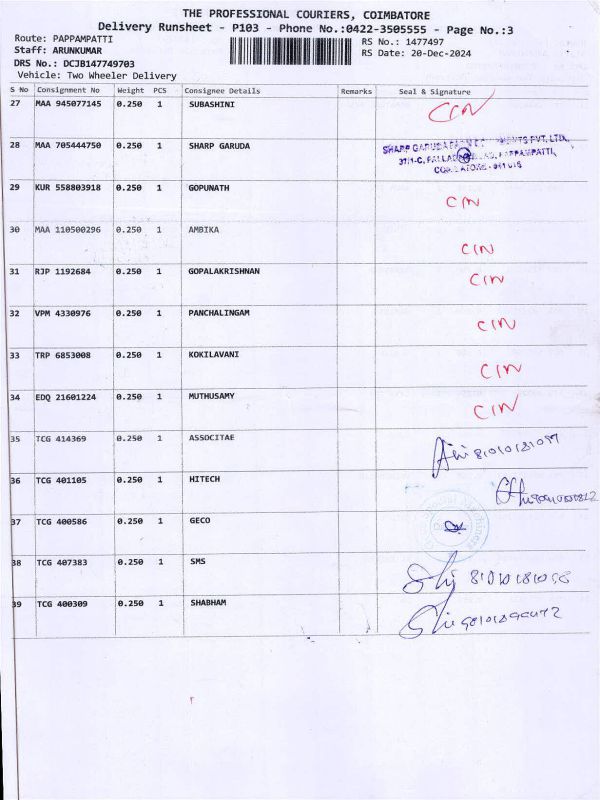 THE PROFESSIONAL COURIERS, COIMBATORE
Delivery Runsheet - P103 - Phone No.:0422-3505555 - Page No.:3
Route: PAPPAMPATTI
RS No.: 1477497
Staff: ARUNKUMAR
RS Date: 20-Dec-2024
DRS No.: DCJB147749703
Vehicle: Two Wheeler Delivery
S No Consignment No Weight PCS Consignee Details Remarks Seal & Signature
27 MAA 945077145 0.250 1 SUBASHINI CIN
28 MAA 705444750 0.250 1 SHARP GARUDA
SHARP GARUDA PVT. LTD.,
37/1-C, PAPPAMPATTI,
29 KUR 558803918 0.250 1 GOPUNATH CIN
30 MAA 110500296 0.250 1 AMBIKA CIN
31 RJP 1192684 0.250 1 GOPALAKRISHNAN CIN
32 VPM 4330976 0.250 1 PANCHALINGAM CIN
33 TRP 6853008 0.250 1 KOKILAVANI CIN
34 EDQ 21601224 0.250 1 MUTHUSAMY CIN
35 TCG 414369 0.250 1 ASSOCITAE
36 TCG 401105 0.250 1 HITECH
37 TCG 400586 0.250 1 GECO
38 TCG 407383 0.250 1 SMS
39 TCG 400309 0.250 1 SHABHAM